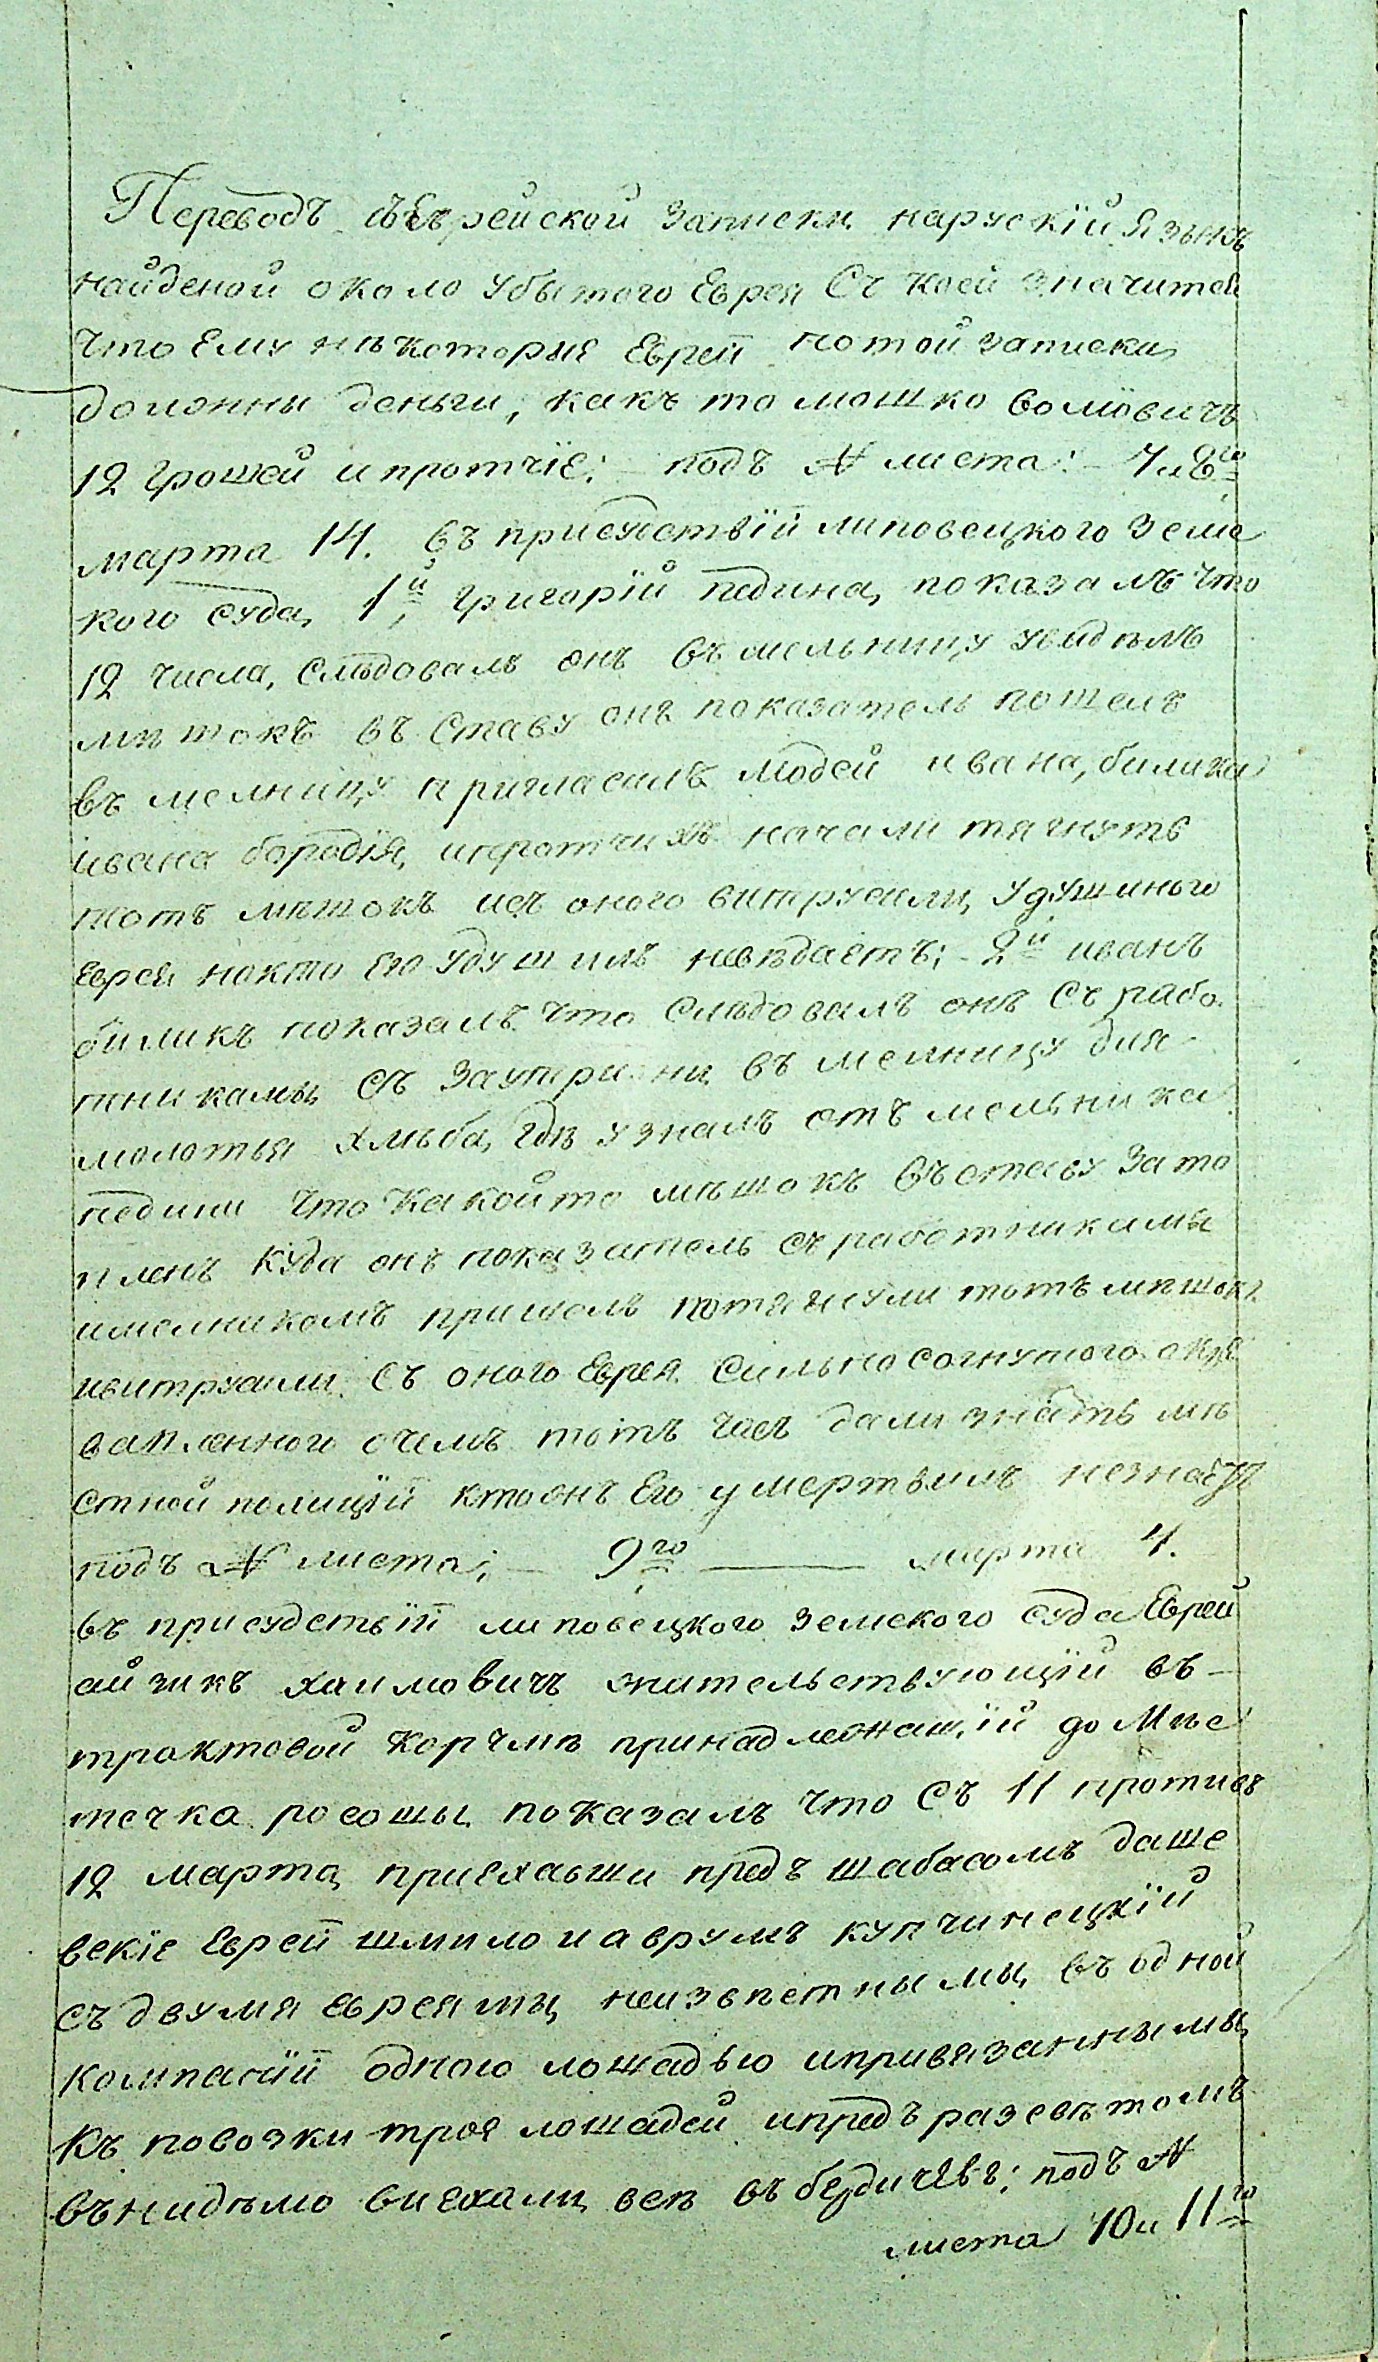 Переводъ съ Еврейской записки нарускій Языкъ
найденой около убытого Еврея Съ коей значится
что Ему нѣкоторыя Еврей потой записки
должны деньги, какъ то мошко волйовичъ
12 грошей ипротчіе; – подъ № листа: – 7 и 8го
марта 14. въ присудствій липовецкого Земс
кого суда, 1й, Григорій педина, показалъ что
12 числа, слѣдовалъ онъ въ мельницу увидѣлъ
мѣшокъ въ ставу онъ показатель пошелъ
въ мелницу пригласилъ людей ивана, билика
ивана бородія, ипротчихъ начали тягнуть
тотъ мѣшокъ исъ оного витрусили, удушиного
Еврея нокто Его удушилъ невѣдаетъ; – 2й иванъ
биликъ показалъ что слѣдовалъ онъ Съ рабо
тниками, съ заутрины, въ мелницу для –
молотья хлѣба, гдѣ узналъ отъ мельника
педини что какойто мѣшокъ въ ставу зато
пленъ куда онъ показатель съ работниками
имелникомъ пришолъ потягнули тотъ мѣшокъ
ивитрусили. Съ оного Еврея сильно согнутого окре
вавленного очемъ тотъ часъ дали знать мѣ
стной полицій ктоонъ Его умертвилъ незнаетъ
подъ № листа; – 9го — марта 4.
въ присудствій липовецкого земского суда Еврей
айзикъ хаимовичъ жительствующій въ –
трактовой корчмѣ принадлежащій до Мѣс
течка росошы показалъ что Съ 11 противъ
12 марта, приехавши предъ шабасомъ даше
вскіе Еврей шмило и аврумъ купчинецкій
съ двумя Евреями, неизвѣстными, въ одной
компаній одною лошадью ипривязанными,
Къ повозки троя лошадей ипредъ разсвѣтомъ
въ нидѣлю виехали, всѣ въ бердичевъ; подъ №
листа 10 и 11го